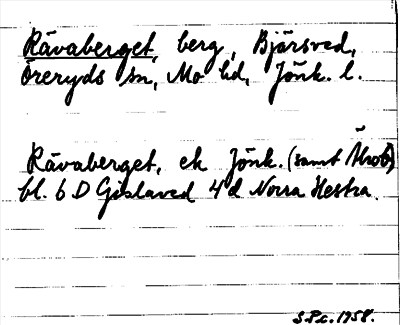 Rävaberget, berg, Bjärsved,
Öreryds sn, Mo hd, Jönk. l.
Rävaberget, ek Jönk. (samt
bl. 6 D Gislaved 4 d Norra Hestra.
S.Pc. 1958.